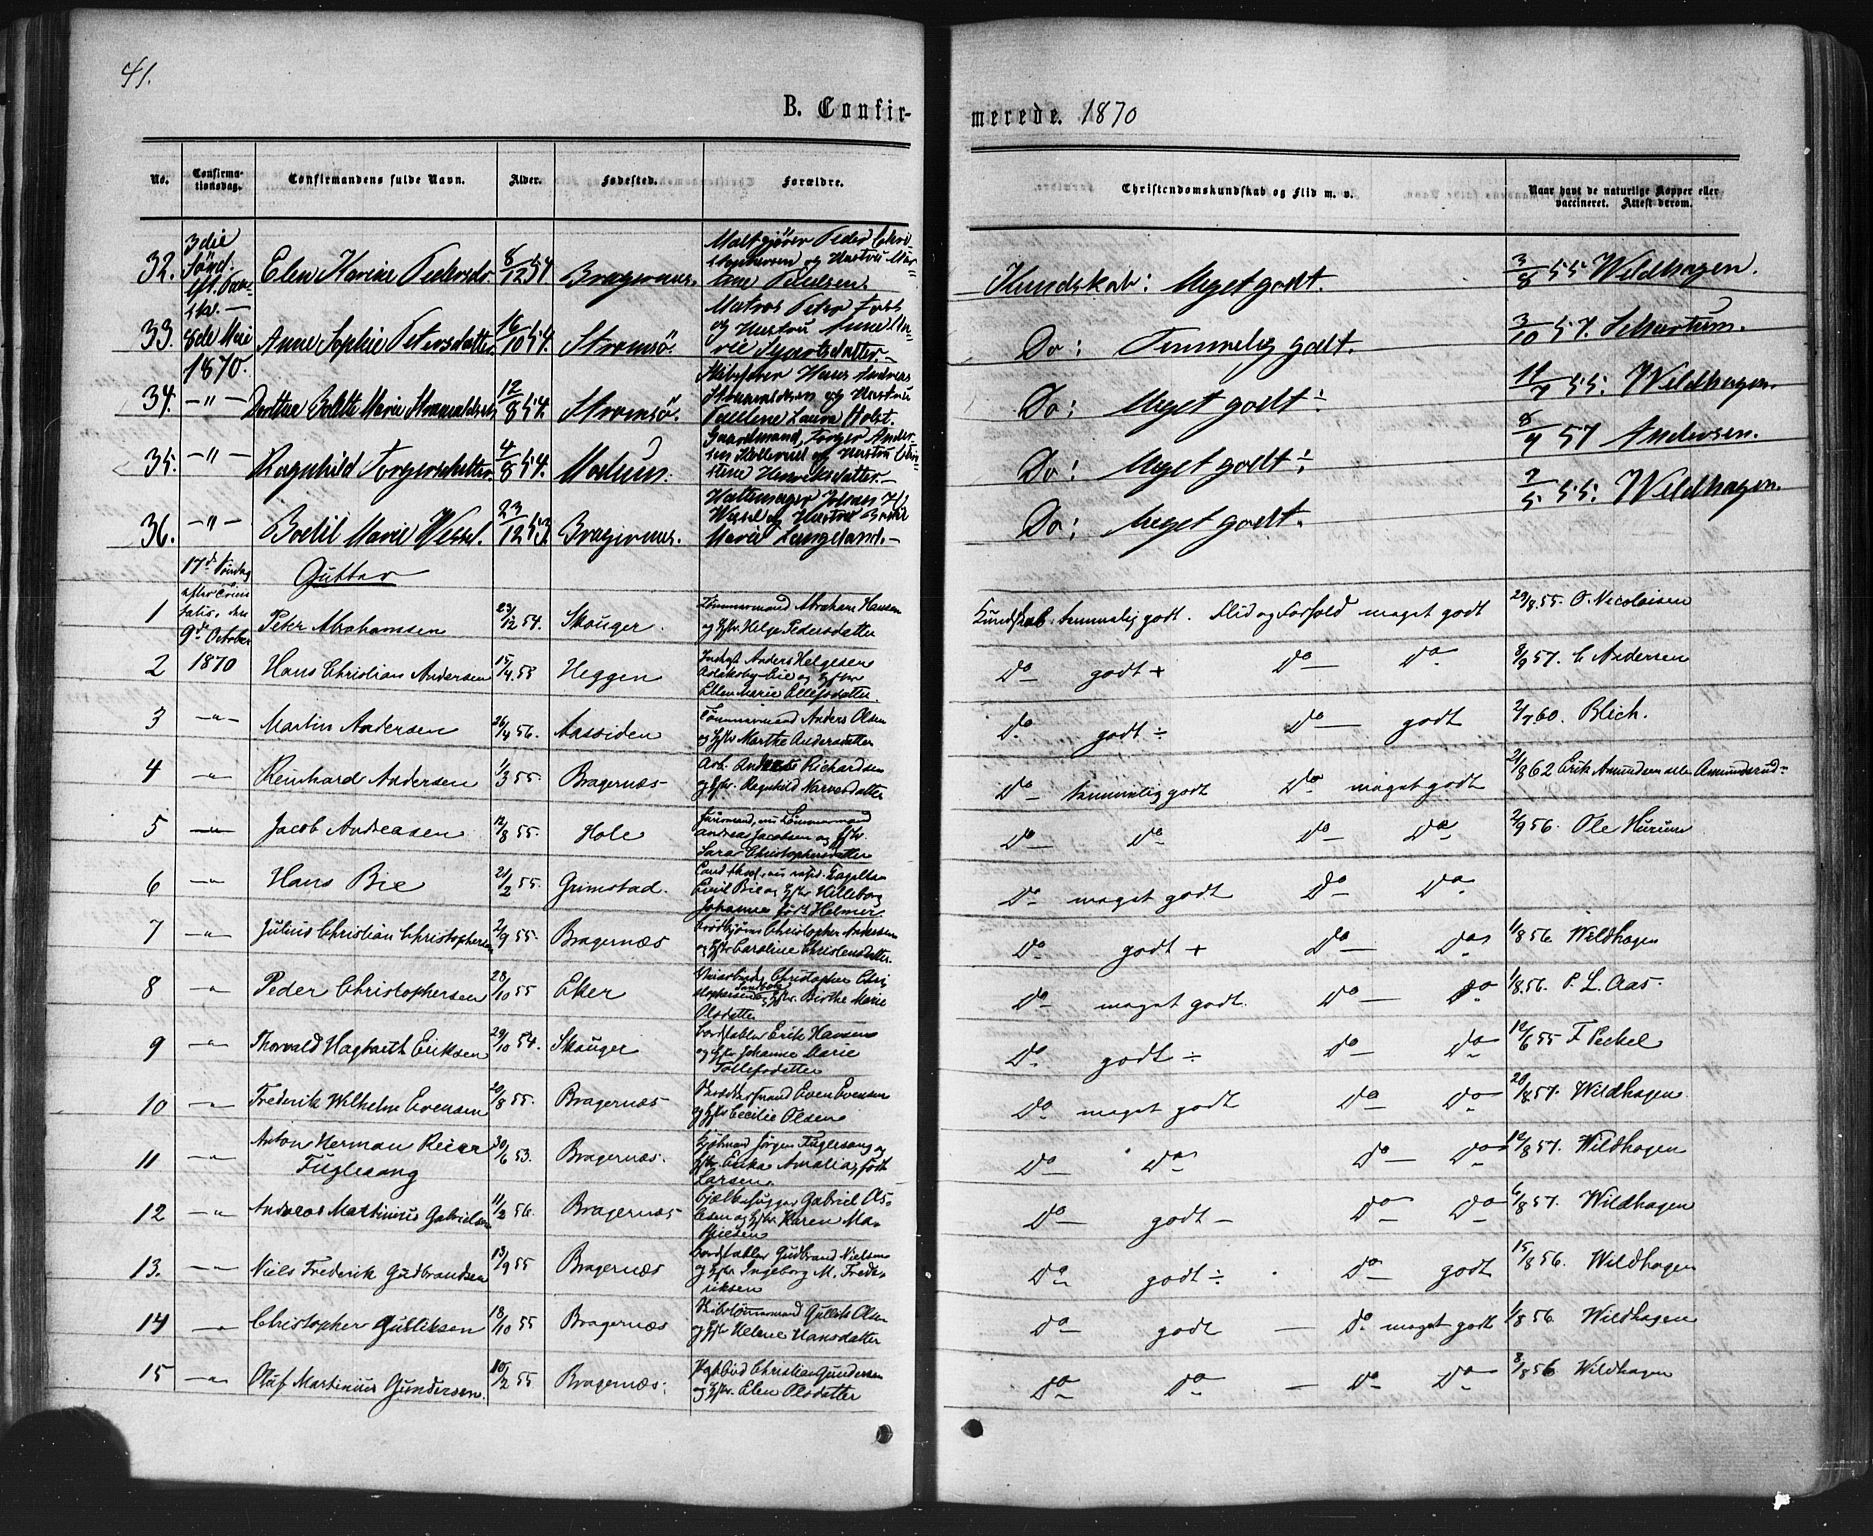 41.
B. Confirmerede. 1870
No.
Confirmationsdag.
Confirmandens fulde Navn.
Alder.
Fødested.
Forældre.
Christendomskundskab og Flid m. v.
Naar havt de naturlige Kopper eller vaccineret. Attest derom.
32. 3die Sönd. eft. Paaske. Elen Karine Pedersdr 8/12 54 Bragernæs. Peder Christophersen og Hustru Kundskab: Meget godt. 3/8 55 Wildhagen.
33. 8de Mai 1870. Anne Sophie Petersdatter 16/10 54. Stromsö. Matros Peter og Hustru Anne Do: Temmelig godt. 3/10 57. Schartum.
34. -"- Bolette Marie 12/8 54. Stromsö. Skibsfører Hans Andreas og Hustru Laura Holst. Do: Meget godt ÷ 11/7 55: Wildhagen.
35. -"- Ragnhild Torgersdatter 4/8 54. Modum. Gaardmand Torger Andersen og Hustru Henriksdatter. Do: Meget godt ÷ 8/7 57 Andersen.
36. -"- Boelil Marie Wessel. 23/12 53. Bragernæs. Hattemager Wessel og Hustru Marie Langeland. Do: Meget godt. 7/5 55: Wildhagen.
Gutter
1 17d Söndag efter Trinitatis, den 9d October 1870 Peter Abrahamsen 23/12 54. Skouger. Tømmermand Abraham Hansen og Hstr Helge Pedersdatter Kundskab temmelig godt. Flid og Forhold meget godt 29/8 55 O. Nicolaisen
2 Hans Christian Andersen 15/4 55 Heggen Anders Helgesen Eie og Hstr Ellen Marie Ellefsdatter. Do godt + Do Do 8/9 57. C Andersen
3 -"- Martin Andersen 26/4 56. Aassiden Tømmermand Anders Olsen og Hstr Marthe Andersdatter Do godt ÷ Do godt 2/7 60. Blich.
4 -"- Reinhard Andersen 1/3 55 Bragernæs Arb. Anders Richardsen og Hstr. Regnhild Narvesdatter Do temmelig godt Do meget godt 21/8 62 Erik Amundsen Amundsrud
5 -"- Jacob Andreasen 12/8 55. Hole Tømmermand Andreas Jacobsen og Hstr. Sara Christophersdatter Do Do Do Do 2/9 56. Ole Hurum
6 -"- Hans Bie 21/2 55. Grimstad. Emil Bie og Hstr Villeborg Johanne født Helmer Do meget godt Do Do
7 -"- Julius Christian Christophersen 2/9 55. Bragernæs Christopher Andersen og Hstr Caroline Christensdatter Do godt + Do Do 1/8 56 Wildhagen
8 -"- Peder Christophersen 28/10 55 Eker Christopher Christophersen og Hstr. Birthe Marie Olsdatter Do meget godt. Do Do 1/8 56. P. L. Aas.
9 -"- Thorvald Hagbarth Eriksen 29/10 54. Skouger Erik Hansen og Hstr Johanne Marie Tollefsdatter Do godt ÷ Do Do 12/6 55 F Peckel
10 -"- Frederik Wilhelm Evensen 20/8 55. Bragernæs Even Evensen og Hstr Cecilie Olsen Do meget godt Do Do 20/8 57. Wildhagen
11 -"- Anton Herman Reier Fuglesang 30/6 53. Bragernæs. Jørgen Fuglesang og Hstr. Erika Amalia født Larsen. Do Do Do Do 12/8 57. Wildhagen
12 -"- Andreas Martinius Gabrielsen 11/2 56. Bragernæs Bjælkehugger Gabriel Olsen og Hstr. Karen Do godt - Do Do 6/8 57. Wildhagen
13. -"- Niels Frederik Gudbrandsen 13/9 55 Bragernæs Gudbrand Nielsen og Hstr Ingeborg M. Frederiksen Do godt ÷ Do godt 15/8 56. Wildhagen
14 -"- Christopher Gulliksen 18/10 55 Bragernæs Skibstømmermand Gullik Olsen og Hstr Helene Hansdatter Do godt - Do meget godt 1/8 56 Wildhagen
15 -"- Oluf Martinius Gundersen. 10/2 55. Bragernæs. Christian Gundersen og Hstr. Elen Olsdatter Do Do - Do Do 8/8 56 Wildhagen